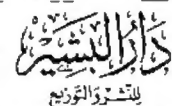 دَارُ البَشِيرْ
للنشر والتوزيع